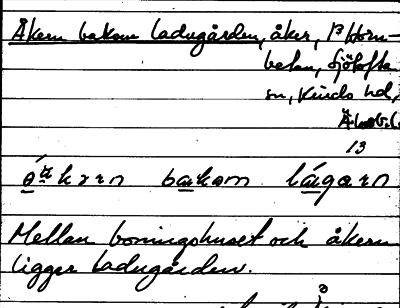 Åkern bakom ladugården, åker, P Horn-
bekan, Sjötofta
sn, Kinds hd,
Älvsb.l.
13
bakom
Mellan boningshuset och åkern
ligger ladugården.